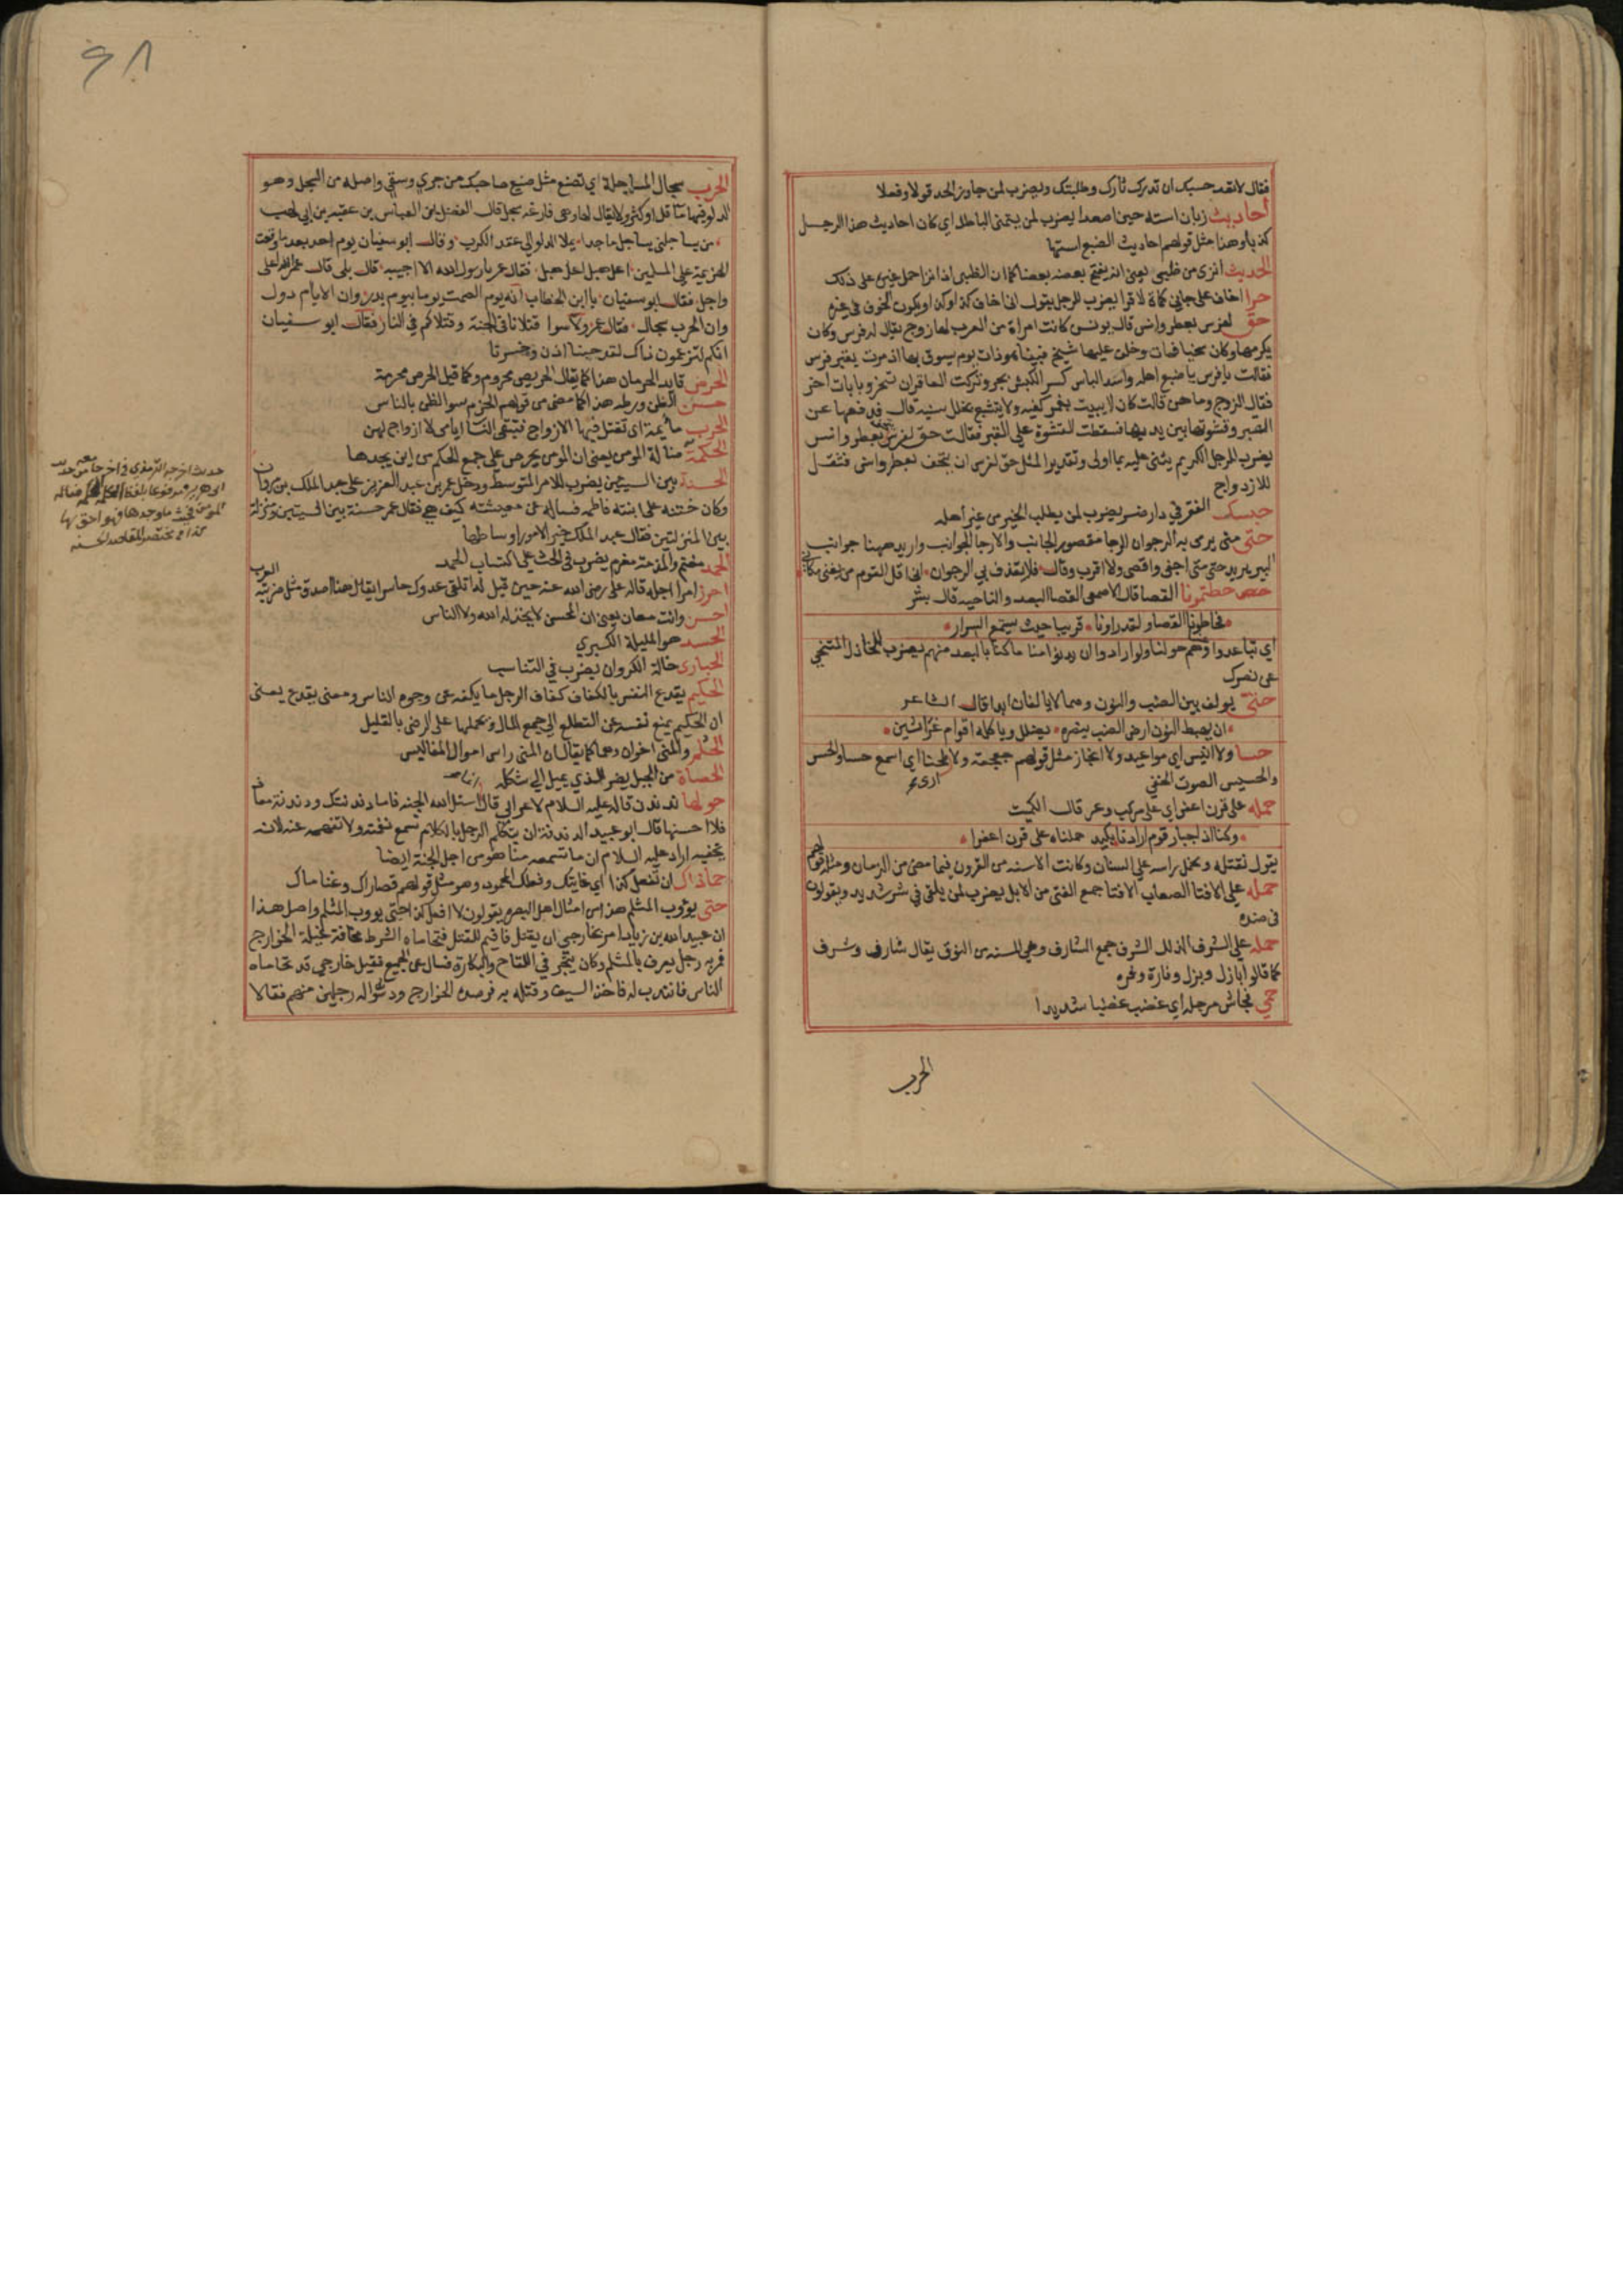 فقال لا بعد حسبك ان تدرك ثارك وطلبتك ويضرب لمن جاوز الحد قولا وفعلا
أحاديث زبان استه حين اصعدا يضرب لمن يتمنى الباطل اي كان احاديث هذا الرجل
كذبا وهذا مثل قولهم احاديث الضبع استها
الحديث انزى من ظبي يعني انه يفتح بعضه بعضا كما ان الظبي اذا نزا حمل غيره على ذلك
حرا اخاف على جاني كماة لا قرا يضرب للرجل يقول اني اخاف كذا وكذا ويكون الخوف في غيره
حق لفرس بعطر وانس قال يونس كانت امراة من العرب لها زوج يقال له فرس وكان
يكرمها وكان سخيا فمات وخلف عليها شيخ فبينما هو ذات يوم يسوق بها اذ مرت بقبر فرس
فقالت يا فرس يا ضبع اهله واسد الباس كسر الكبش بحر وتركت العاقر ان تنحر وبابات اخر
فقال الزوج وما هن قالت كان لا يبيت بغمر كفيه ولا يتشبع بخلل سنيه قال فدفعها عن
البعير وقشوتها بين يديها فسقطت القشوة على القبر فقالت حق لفرس بعطر وانس
يضرب للرجل الكريم يثنى عليه بما اولى وتقدير المثل حق لفرس ان يتحف بعطر وانس فثقل
للازدواج
حبسك الفقر في دار ضر يضرب لمن يطلب الخير من غير اهله
حتى متى يرمى به الرجوان الرجا مقصور الجانب والارجا الجوانب واريد ههنا جوانب
البير يريد حتى متى اجفى واقصى ولا اقرب وقال فلا يقذف بي الرجوان اني اقل القوم من يغني مكاني
حطتمونا القصا قال الاصمعي القصا البعد والناحيه قال بشر
فحاطونا القصا ولقد راونا قريبا حيث يستمع السرار
اي تباعدوا وهم حولنا ولو ارادوا ان يدنوا منا ما كنا بالبعد منهم يضرب للخاذل المتنحي
عن نصرك
حتى يولف بين الضب والنون وهما لا يالفان ابدا قال الشاعر
ان يهبط النون ارض الضب ينصره يضلل ويا كله اقوام غراثين
حسا ولا انيس اي مواعيد ولا انجاز مثل قولهم جعجعة ولا ارى طحنا اي اسمع حسا والحس
والحسيس الصوت الخفي
حمله على قرن اعفر اي على مركب وعر قال الكميت
وكنا اذا جبار قوم ارادنا بكيد حملناه على قرن اعفرا
يقول نقتله ونحمل راسه على السنان وكانت الاسنه من القرون فيما مضى من الزمان ومثله قولهم
حمله على الافتا الصعاب الافتا جمع الفتى من الابل يضرب لمن يلقى في شر شديد ويقولون
في ضده
حمله على الشرف الذلل الشرف جمع الشارف وهي المسنه من النوق يقال شارف وشرف
كما قالوا بازل وبزل وفارة وفره
حمي فجاش مرجله اي غضب غضبا شديدا
الحرب
الحرب سجال المساجلة اي تصنع مثل صنيع صاحبك من جري وسقي واصله من السجل وهو
الدلو فيها ما قل او كثر ولا يقال لها وهي فارغه سجل قال الفضل بن العباس بن عتبة بن ابي لهب
من يساجلني يساجل ماجدا يملا الدلو الى عقد الكرب وقال ابو سفيان يوم احد بعد ما وقعت
الهزيمة على المسلمين اعل هبل اعل هبل فقال عمر يا رسول الله الا اجيبه قال بلى قال عمر الله اعلى
واجل فقال ابو سفيان يا ابن الخطاب انه يوم الصمت يوما بيوم بدر وان الايام دول
وان الحرب سجال فقال عمر ولا سوا قتلانا في الجنة وقتلاكم في النار فقال ابو سفيان
انكم لتزعمون ذاك لقد خبنا اذن وخسرنا
الحرص قايد الحرمان هذا كما يقال الحريص محروم وكما قيل الحرص محرمة
حسن الظن ورطه هذا كما مضى من قولهم الحزم سو الظن بالناس
الحرب مأيمة اى تقتل فيها الازواج فتبقى النسا ايامى لا ازواج لهن
الحكمة ضالة المومن يعني ان المومن يحرص على جمع الحكم من اين يجدها
الحسنة بين السيئتين يضرب للامر المتوسط ودخل عمر بن عبد العزيز على عبد الملك بن مروان
وكان ختنه على ابنته فاطمه فساله عن معيشته كيف هي فقال عمر حسنة بين السيئتين ومنزلة
بين المنزلتين فقال عبد الملك خير الامور اوساطها
الحمد مغنم والمذمة مغرم يضرب في الحث على اكتساب الحمد
احرز امرا اجله قاله علي رضي الله عنه حين قيل له اتلقى عدوك حاسرا يقال هذا اصدق مثل ضربته العرب
احسن وانت معان يعني ان المحسن لا يخذله الله ولا الناس
الحسد هو المليلة الكبري
الحبارى خالة الكروان يضرب في التناسب
الحكيم يقدع النفس بالكفاف كفاف الرجل ما يكفه عن وجوه الناس ومعنى يقدع يعني
ان الحكيم يمنع نفسه عن التطلع الى جمع المال ويحملها على الرضى بالقليل
الحلم والمنى اخوان وهما كما يقال ان المنى راس اموال المفاليس
الحصاة من الجبل يضر للذي يميل الى شكله
حولها ندندن قاله عليه السلام لاعرابي قال اسئل الله الجنه فاما دندنتك ودندنة معاذ
فلا احسنها قال ابو عبيد الدندنة ان يتكلم الرجل بالكلام تسمع نغمته ولا تفهمه عنه لانه
يخفيه اراد عليه السلام ان ما تسمعه منا هو من اجل الجنة ايضا
حماداك ان تفعل كذا اي غايتك وفعلك المحمود وهو مثل قولهم قصاراك وغناماك
حتى يؤوب المثلم هذا من امثال اهل البصره يقولون لا افعل كذا حتى يووب المثلم واصل هذا
ان عبيد الله بن زياد امر بخارجي ان يقتل فاقيم للقتل فتحاماه الشرط مخافة غيلة الخوارج
فمر به رجل يعرف بالمثلم وكان يتجر في اللقاح والبكارة فسال عن الجمع فقيل خارجي قد تحاماه
الناس فانتدب له فاخذ السيف وقتله به فرصده الخوارج ودسوا له رجلين منهم فقالا
حديث اخرجه الترمذي في اخر جامعه من حديث
ابي هريرة مرفوعا بلفظ الكلمة الحكمة ضالة
المومن فحيث ما وجدها فهو احق بها
كذا في مختصر المقاصد الحسنه